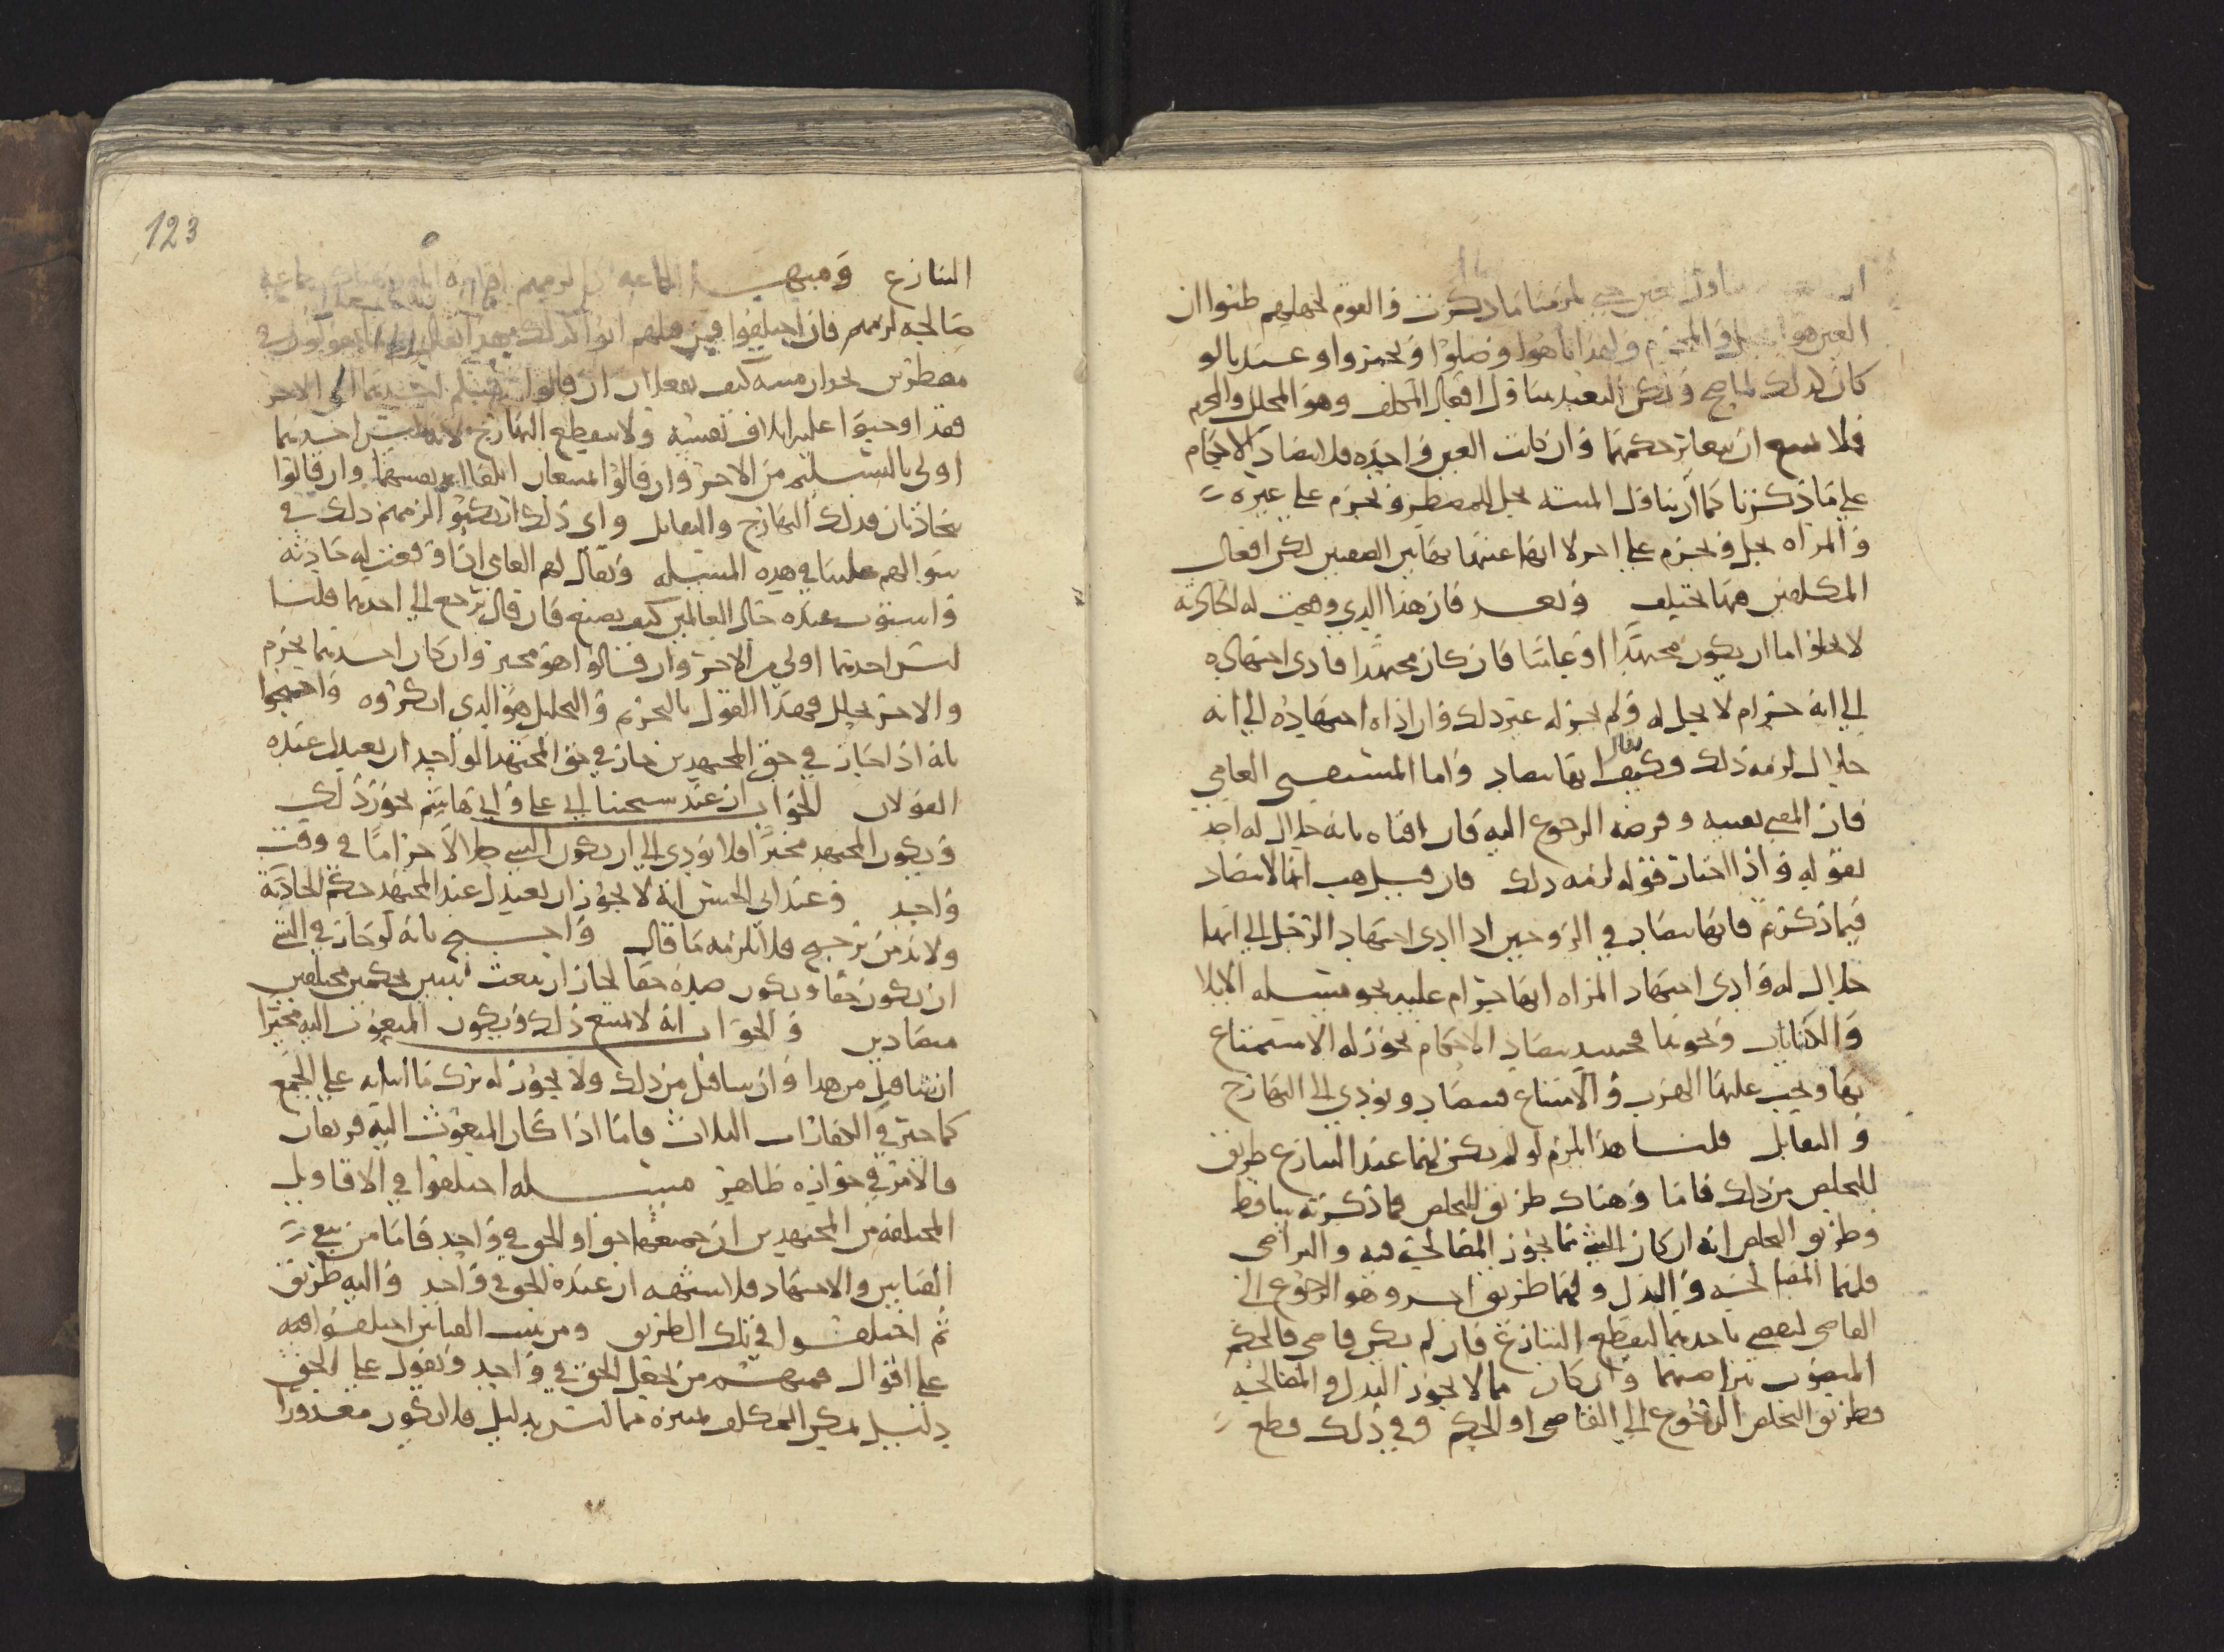 تناول عين حتى يلزمنا ما ذكرت والقوم لجهلهم ظنوا ان
العين هو المحلل والمحرم ولهذا تاهوا وضلوا وتحيروا وعندنا لو
كان كذلك لما صح ولكن التعبد يتناول افعال المكلف وهو المحلل والمحرم
فلا يمتنع ان يتغاير حكمهما وان كانت العين واحدة فلا يتضاد الاحكام
على ما ذكرنا كما ان تناول الميتة يحل للمضطر ويحرم على غيره
والمراه تحل وتحرم على اخر لا انها عينها بهاتين الصفتين لكن افعال
المكلفين فيها تختلف وبعد فان هذا الذي وقعت له الحادثة
لا يخلو اما ان يكون مجتهدا او عاميا فان كان مجتهدا فادى اجتهاده
الى انه حرام لا يحل له ولم يجز له غير ذلك وان اداه اجتهاده الى انه
حلال لزمه ذلك وكيف يقال انها تتضاد واما المستفتي العامي
فان المفتي يفتيه وفرضه الرجوع اليه فان افتاه بانه حلال له اخذ
بقوله واذا اختار قوله لزمه ذلك فان قيل هب انها لا تتضاد
فيما ذكرتم فانها تتضاد في الزوجين اذا ادى اجتهاد الرجل الى انها
حلال له وادى اجتهاد المراه انها حرام عليه نحو مسله الايلا
والكنايات ونحوها فحينئذ يتضاد الاحكام يجوز له الاستمتاع
بها ويجب عليها الهرب والامتناع فيتضاد ويودي الى التهارج
والتقابل قلنا هذا يلزم لو لم يكن لهما عند التنازع طريق
للتخلص من ذلك فاما وهناك طريق للتخلص فما ذكرته ساقط
وطريق التخلص انه ان كان الشي مما يجوز المصالحة فيه والتراضي
فلهما المصالحة والبدل ولهما طريق اخر وهو الرجوع الى
القاضي ليقضي باحدهما ليقطع التنازع فان لم يكن قاضي فالحكم
المبعوث بتراضيهما وان كان مما لا يجوز البدل والمصالحة
فطريق التخلص الرجوع الى القاضي او الحكم وفي ذلك قطع
123
التنازع
صالحة لزمهم فان اختلفوا فمن قبلهم اتوا كذلك
مضطرين يجدان ميتة كيف يفعلان ان قالوا يسلم احدهما الى الاخر
فقد اوجبوا عليه اتلاف نفسه ولا ينقطع التهارج لانه ليس احدهما
اولى بالتسليم من الاخر وان قالوا يمتنعان اتلفا نفسهما وان قالوا
يتجاذبان فذلك التهارج والتقابل واي ذلك ارتكبوا لزمهم ذلك في
سوالهم علينا في هذه المسله ويقال لهم العامي اذا وقعت له حادثة
واستوت عنده حال العالمين كيف يصنع فان قال يرجع الى احدهما قلنا
ليس احدهما اولى من الاخر وان قالوا هو مخير وان كان احدهما يحرم
والاخر يحلل فهذا القول بالتحريم والتحليل هو الذي انكروه واحتجوا
بانه اذا جاز في حق المجتهدين جاز في حق المجتهد الواحد ان يعتدل عنده
القولان الجواب ان عند شيخنا ابي علي وابي هاشم يجوز ذلك
ويكون المجتهد مخيرا فلا يودي الى ان يكون الشي حلالا حراما في وقت
واحد وعند ابي الحسن انه لا يجوز ان يعتدل عند المجتهد حكم الحادثة
ولا بد من ترجيح فلا يلزمه ما قال واحتج بانه لو جاز في الشي
ان يكون حقا ويكون ضده حقا لجاز ان يبعث نبيين بحكمين مختلفين
متضادين والجواب انه لا يمتنع ذلك ويكون المبعوث اليه مخيرا
ان شا قبل من هذا وان شا قبل من ذلك ولا يجوز له ترك ما اتيا به على الجمع
كما خير في الكفارات الثلاث فاما اذا كان المبعوث اليه فريقان
فالامر في جوازه ظاهر مسله اختلفوا في الاقاويل
المختلفة من المجتهدين ان جميعها حق او الحق في واحد فاما من يمنع
القياس والاجتهاد فلا شبهه ان عنده الحق في واحد واليه طريق
ثم اختلفوا في تلك الطريق ومن يثبت القياس اختلفوا فيه
على اقوال فمنهم من يجعل الحق في واحد ويقول على الحق
دليل يمكن المكلف تمييزه مما ليس بدليل فلا يكون معذورا